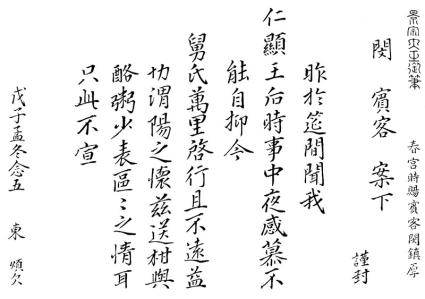 景宗大王御筆
春宮時賜賓客閔鎮厚
閔 賓客 案下
謹封
昨於筵間聞我
仁顯王后時事中夜感慕不
能自抑今
舅氏萬里啓行且不遠益
切渭陽之懷玆送柑與
酪粥少表區〻之情耳
只此不宣
戊子孟冬念五 東